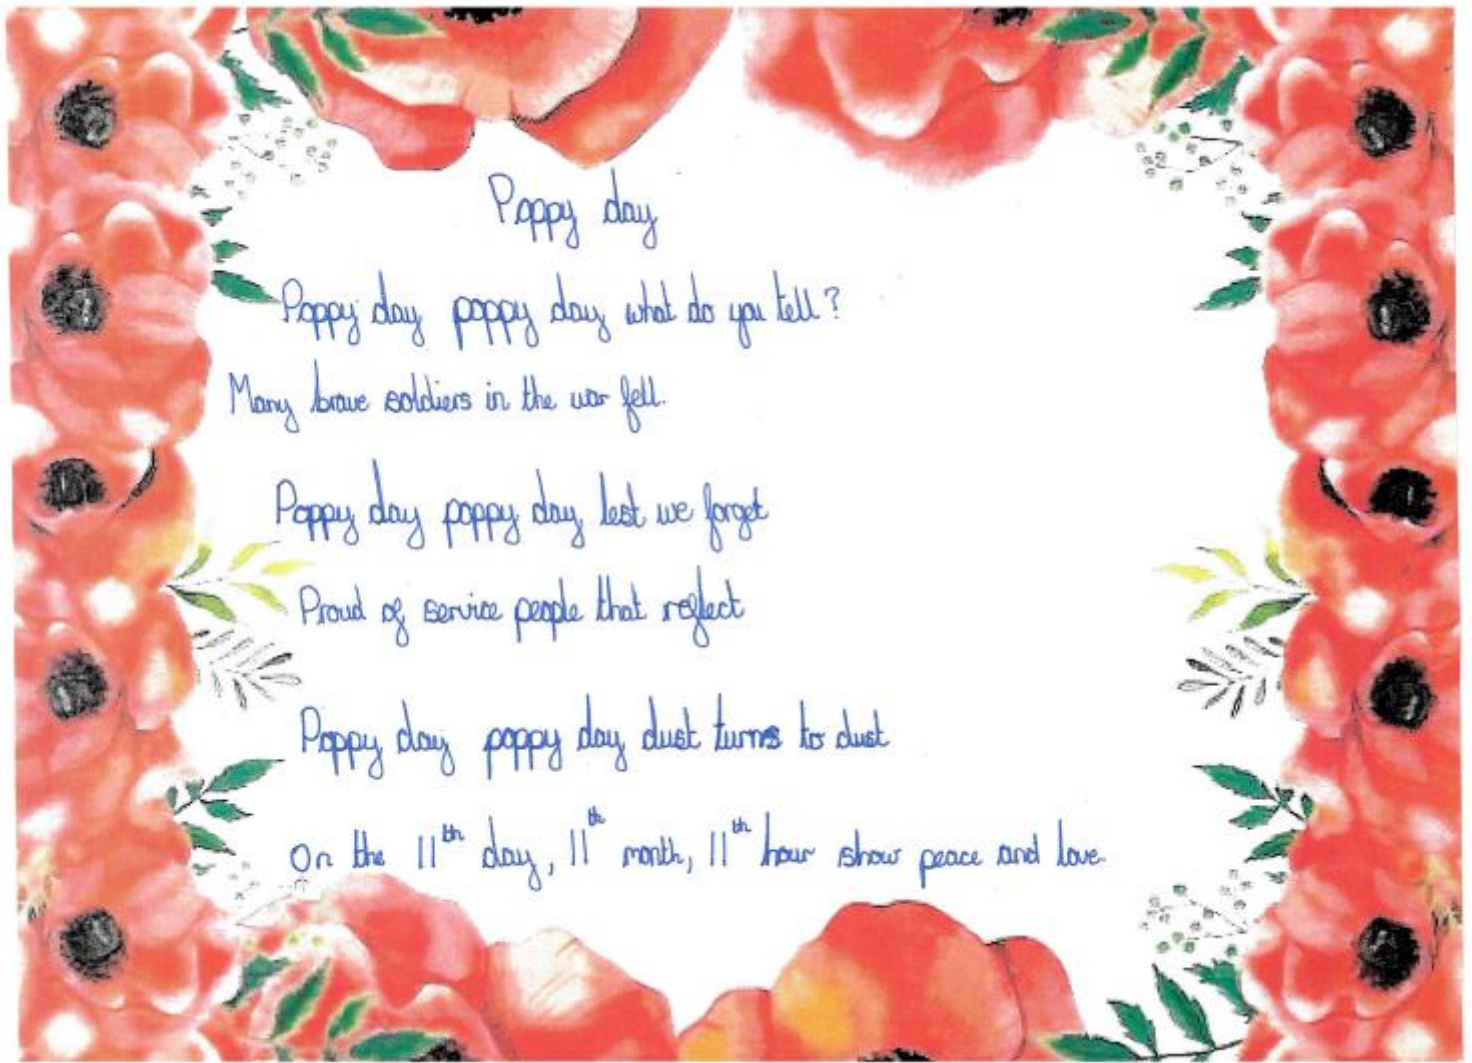 Poppy day
Poppy day poppy day what do you tell?
Many brave soldiers in the war fell.
Poppy day poppy day lest we forget
Proud of service people that reflect
Poppy day poppy day dust turns to dust
On the 11th day, 11th month, 11th hour show peace and love.